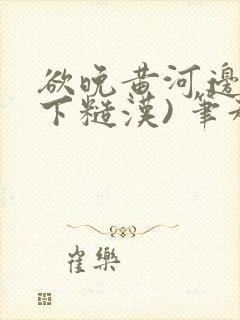 欲晚黃河邊
下糙漢) 筆
崔樂